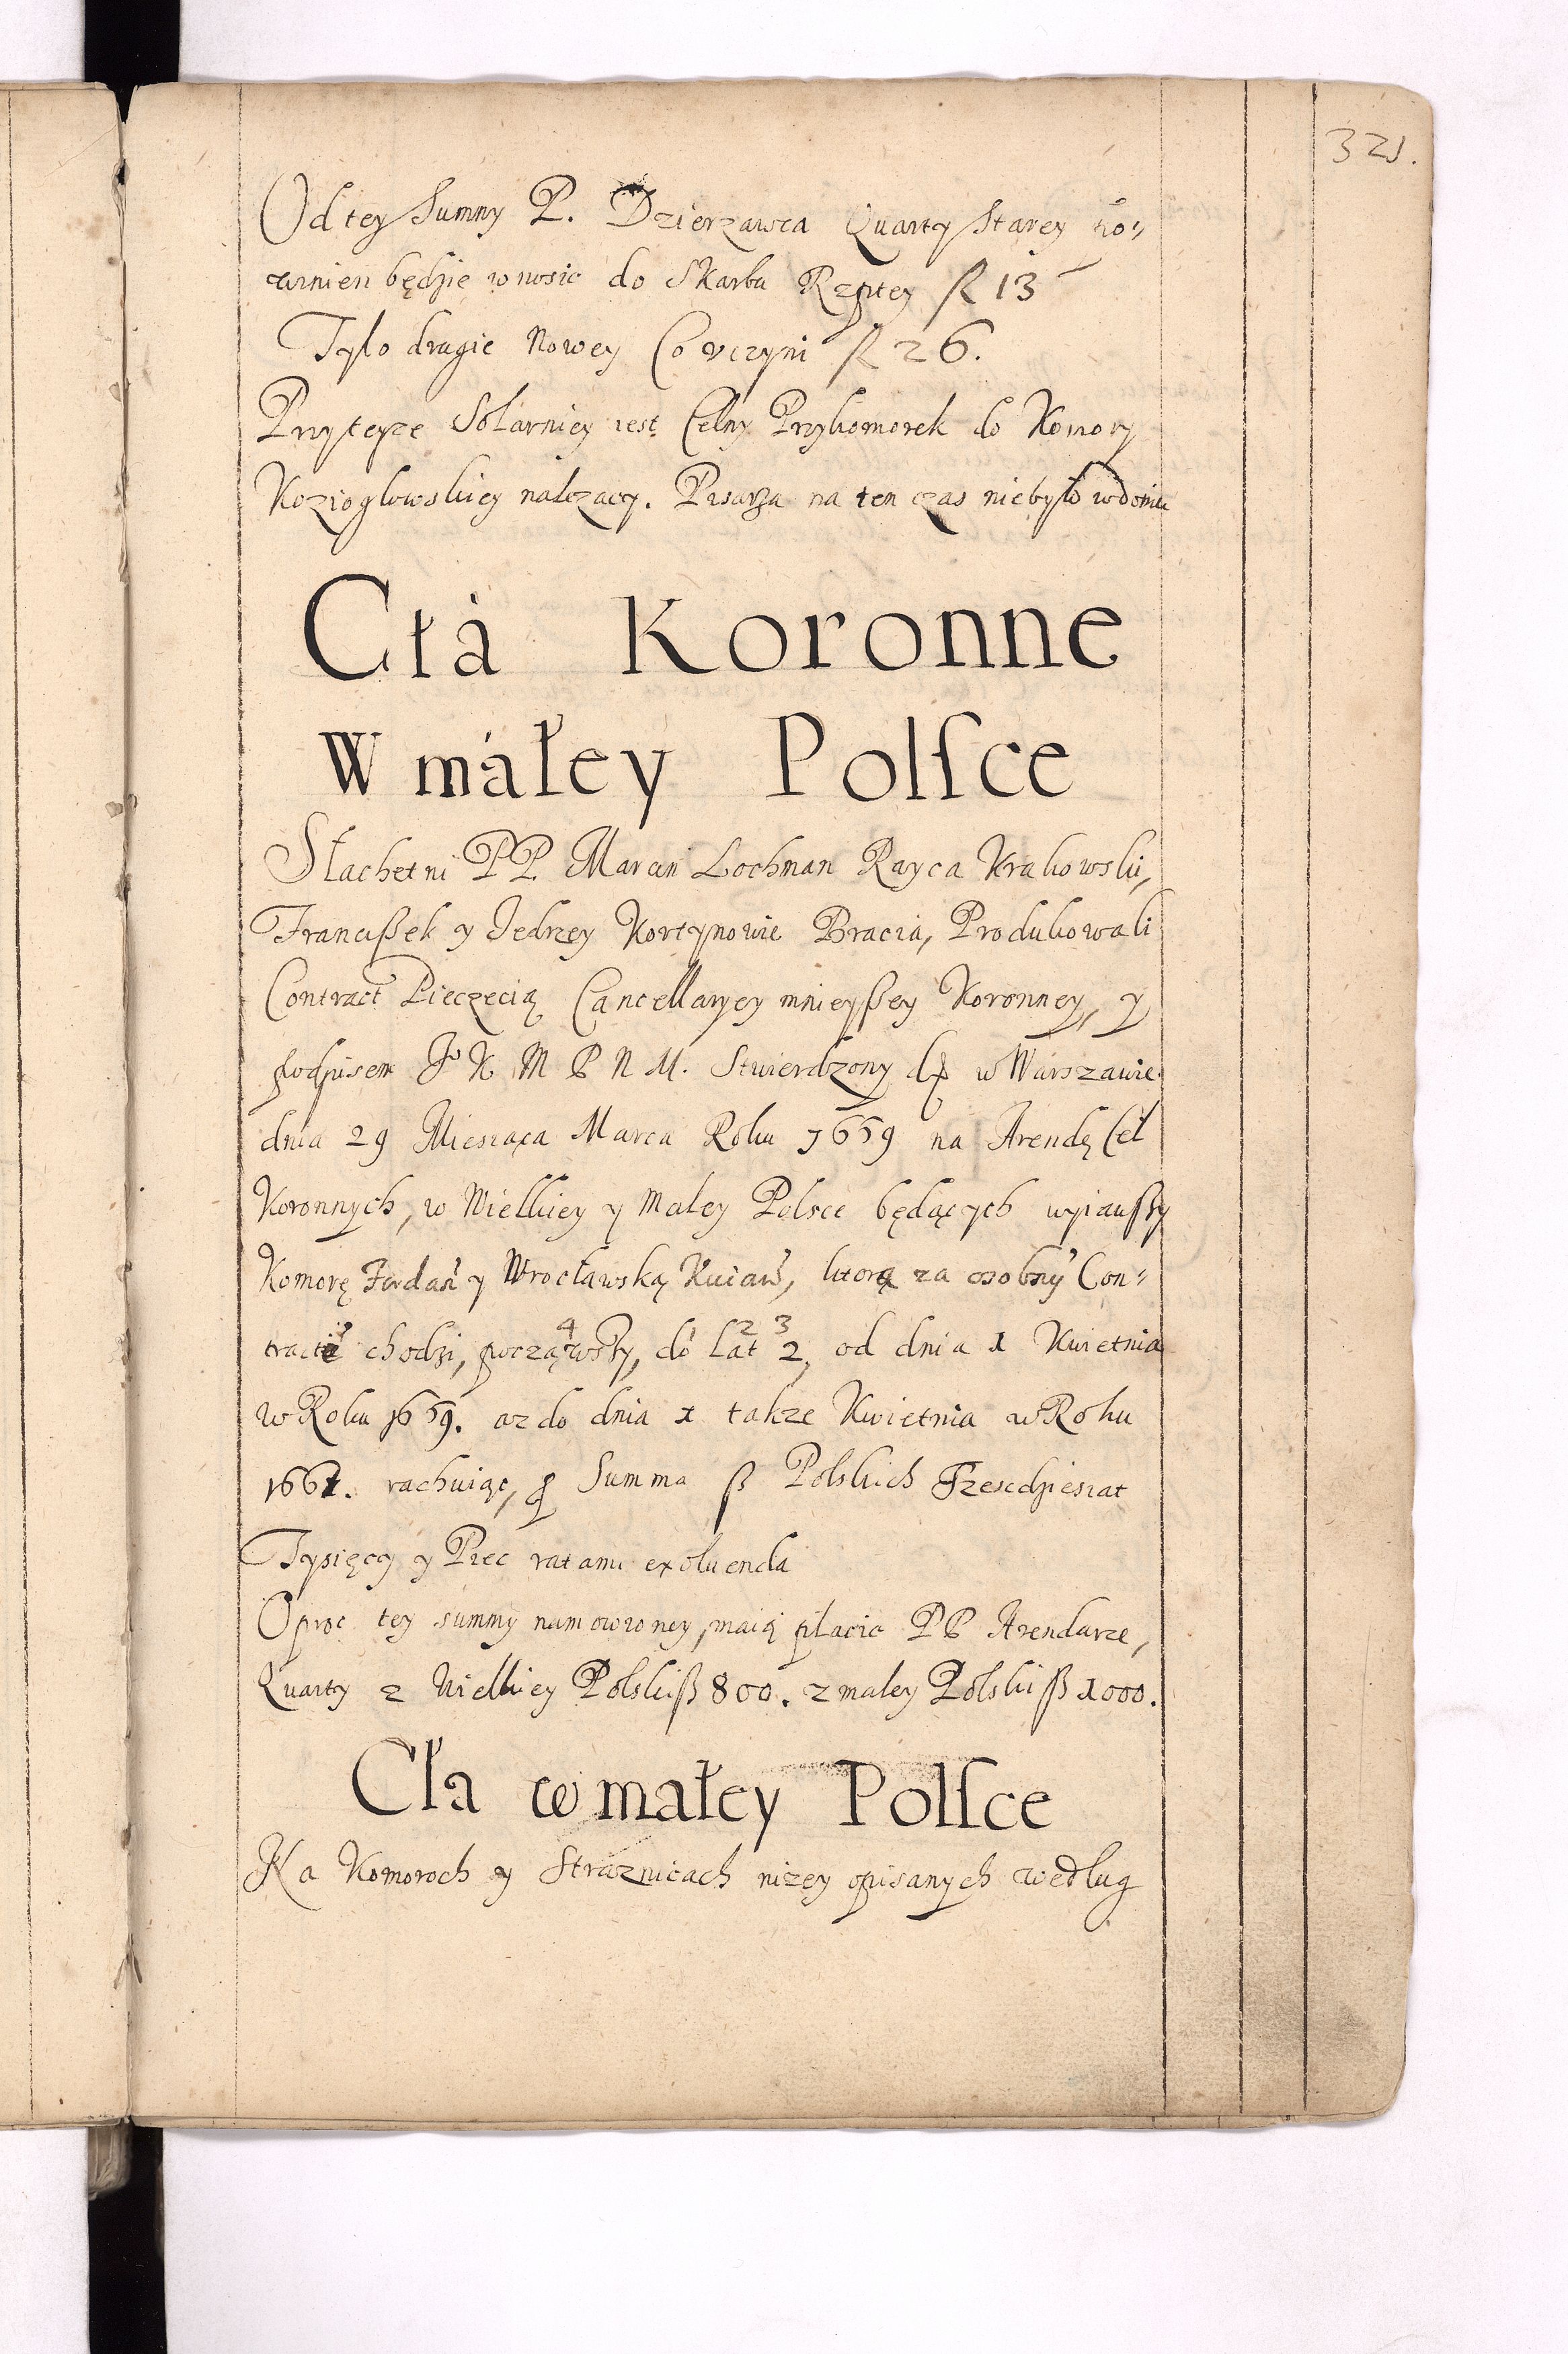 321.
Od tey Summy P. Dzierzawca Quarty Starey po„
winien będzie wnosic do Skarbu Rzptey fl 13
Tylo drugie Nowey Co vczyni fl 26.
Przyteyze Solarniey iest Celny Przykomorek do Komory
Kozioglowskiey nalezacy. Pisarza na ten czas niebyło wdomu
Cłá Koronne
W máłey Polſce
Slachetni PP. Marcin Lochman Rayca Krakowski,
Francißek y Jedrzey Kortynowie Bracia, Produkowali
Contract Pieczęcią Cancellaryey mnieyßey Koronney, y
podpisem Jo K M P N M. Stwierdzony dt w Warszawie
dnia 29 Miesiąca Marca Roku 1659 na Arendę Ceł
Koronnych, w Wielkiey y Małey Polsce będących wyiąwßy
Komorę Fordan y Wrocławską Kuiaw, ktora za osobny Con„
tractē chodzi, począwßy, do Lat 2, od dnia 1 Kwietnia
4 2 3
w Roku 1659. az do dnia 1 takze Kwietnia w Roku
1661. rachuiąc, Summa ß Polskich Trzescdziesiat
Tysięcy y Piec ratami exoluenda
Oproc tey summy namowioney, maią płacic PP Arendarze,
Quarty z Wielkiey Polski ß 800. z małey Polski ß 1000.
Cła w małey Polſce
Na Komoroch y Straznicach nizey opisanych według